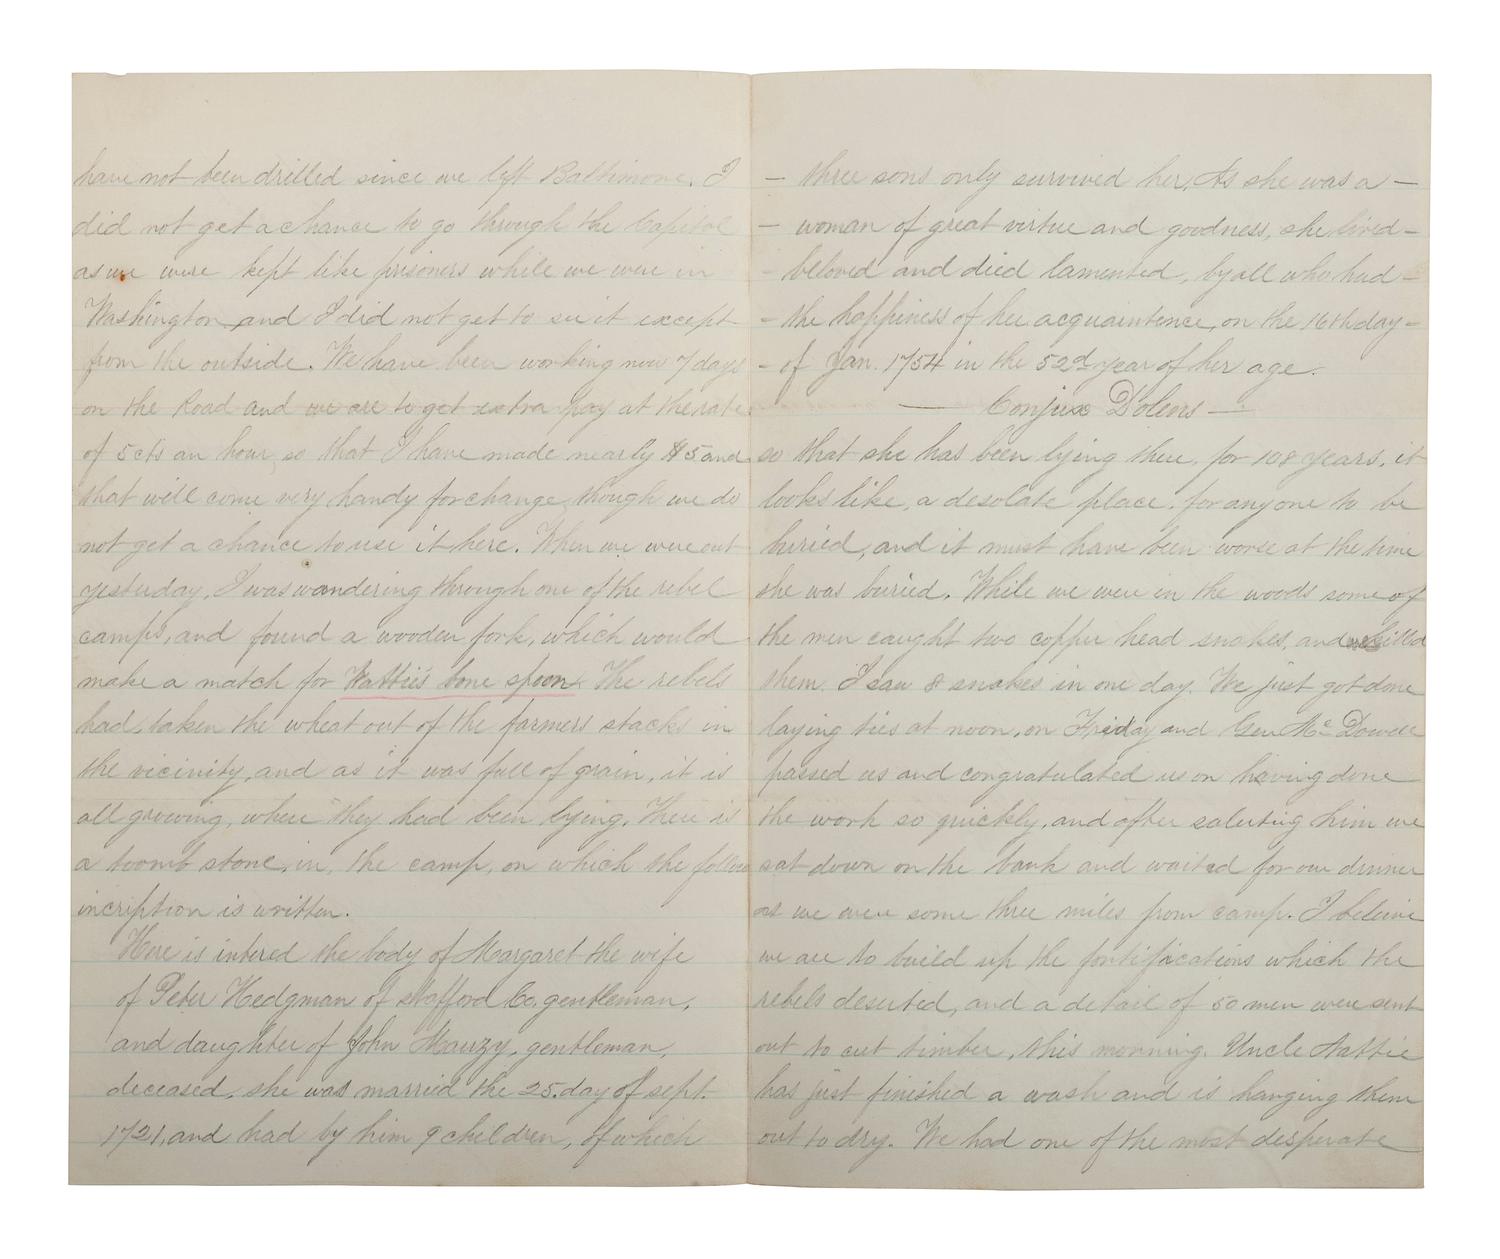 have not been drilled since we left Baltimore. I
did not get a chance to go through the Capitol
as we were kept like prisoners while we were in
Washington and I did not get to see it except
from the outside. We have been working now 7 days
on the Road and we are to get extra pay at the rate
of 5 cts an hour, so that I have made nearly $5 and
that will come very handy for change, though we do
not get a chance to use it here. When we were out
yesterday, I was wandering through one of the rebel
camps, and found a wooden fork, which would
make a match for Wattie's bone spoon. The rebels
had, taken the wheat out of the farmers stacks in
the vicinity, and as it was full of grain, it is
all growing, where they had been lying. There is
a toomb stone, in, the camp, on which the follow
incription is written.
Here is intered the body of Margaret the wife
of Peter Hedgman of stafford Co, gentleman,
and daughter of John Mauzy, gentleman,
deceased, she was married the 25. day of sept.
1721, and had by him 9 children, of which
— three sons only survived her, As she was a —
— woman of great virtue and goodness, she lived —
- beloved and died lamented, by all who had —
- the happiness of her acquaintence, on the 16th day —
- of Jan. 1754 in the 52d year of her age.
— Conjux Dolens —
so that she has been lying there, for 108 years, it
looks like, a desolate place, for any one to be
buried, and it must have been worse at the time
she was buried. While we were in the woods some of
the men caught two copper head snakes, and killd
them. I saw 8 snakes in one day. We just got done
laying ties at noon, on Friday and Gen Mc Dowell
passed us and congratulated us on having done
the work so quickly, and after saluting him we
sat down on the bank and waited for our dinner
as we were some three miles from camp. I beleive
we are to build up the fortifications which the
rebels deserted, and a detail of 50 men were sent
out to cut timber, this morning. Uncle Hattie
has just finished a wash and is hanging them
out to dry. We had one of the most desperate